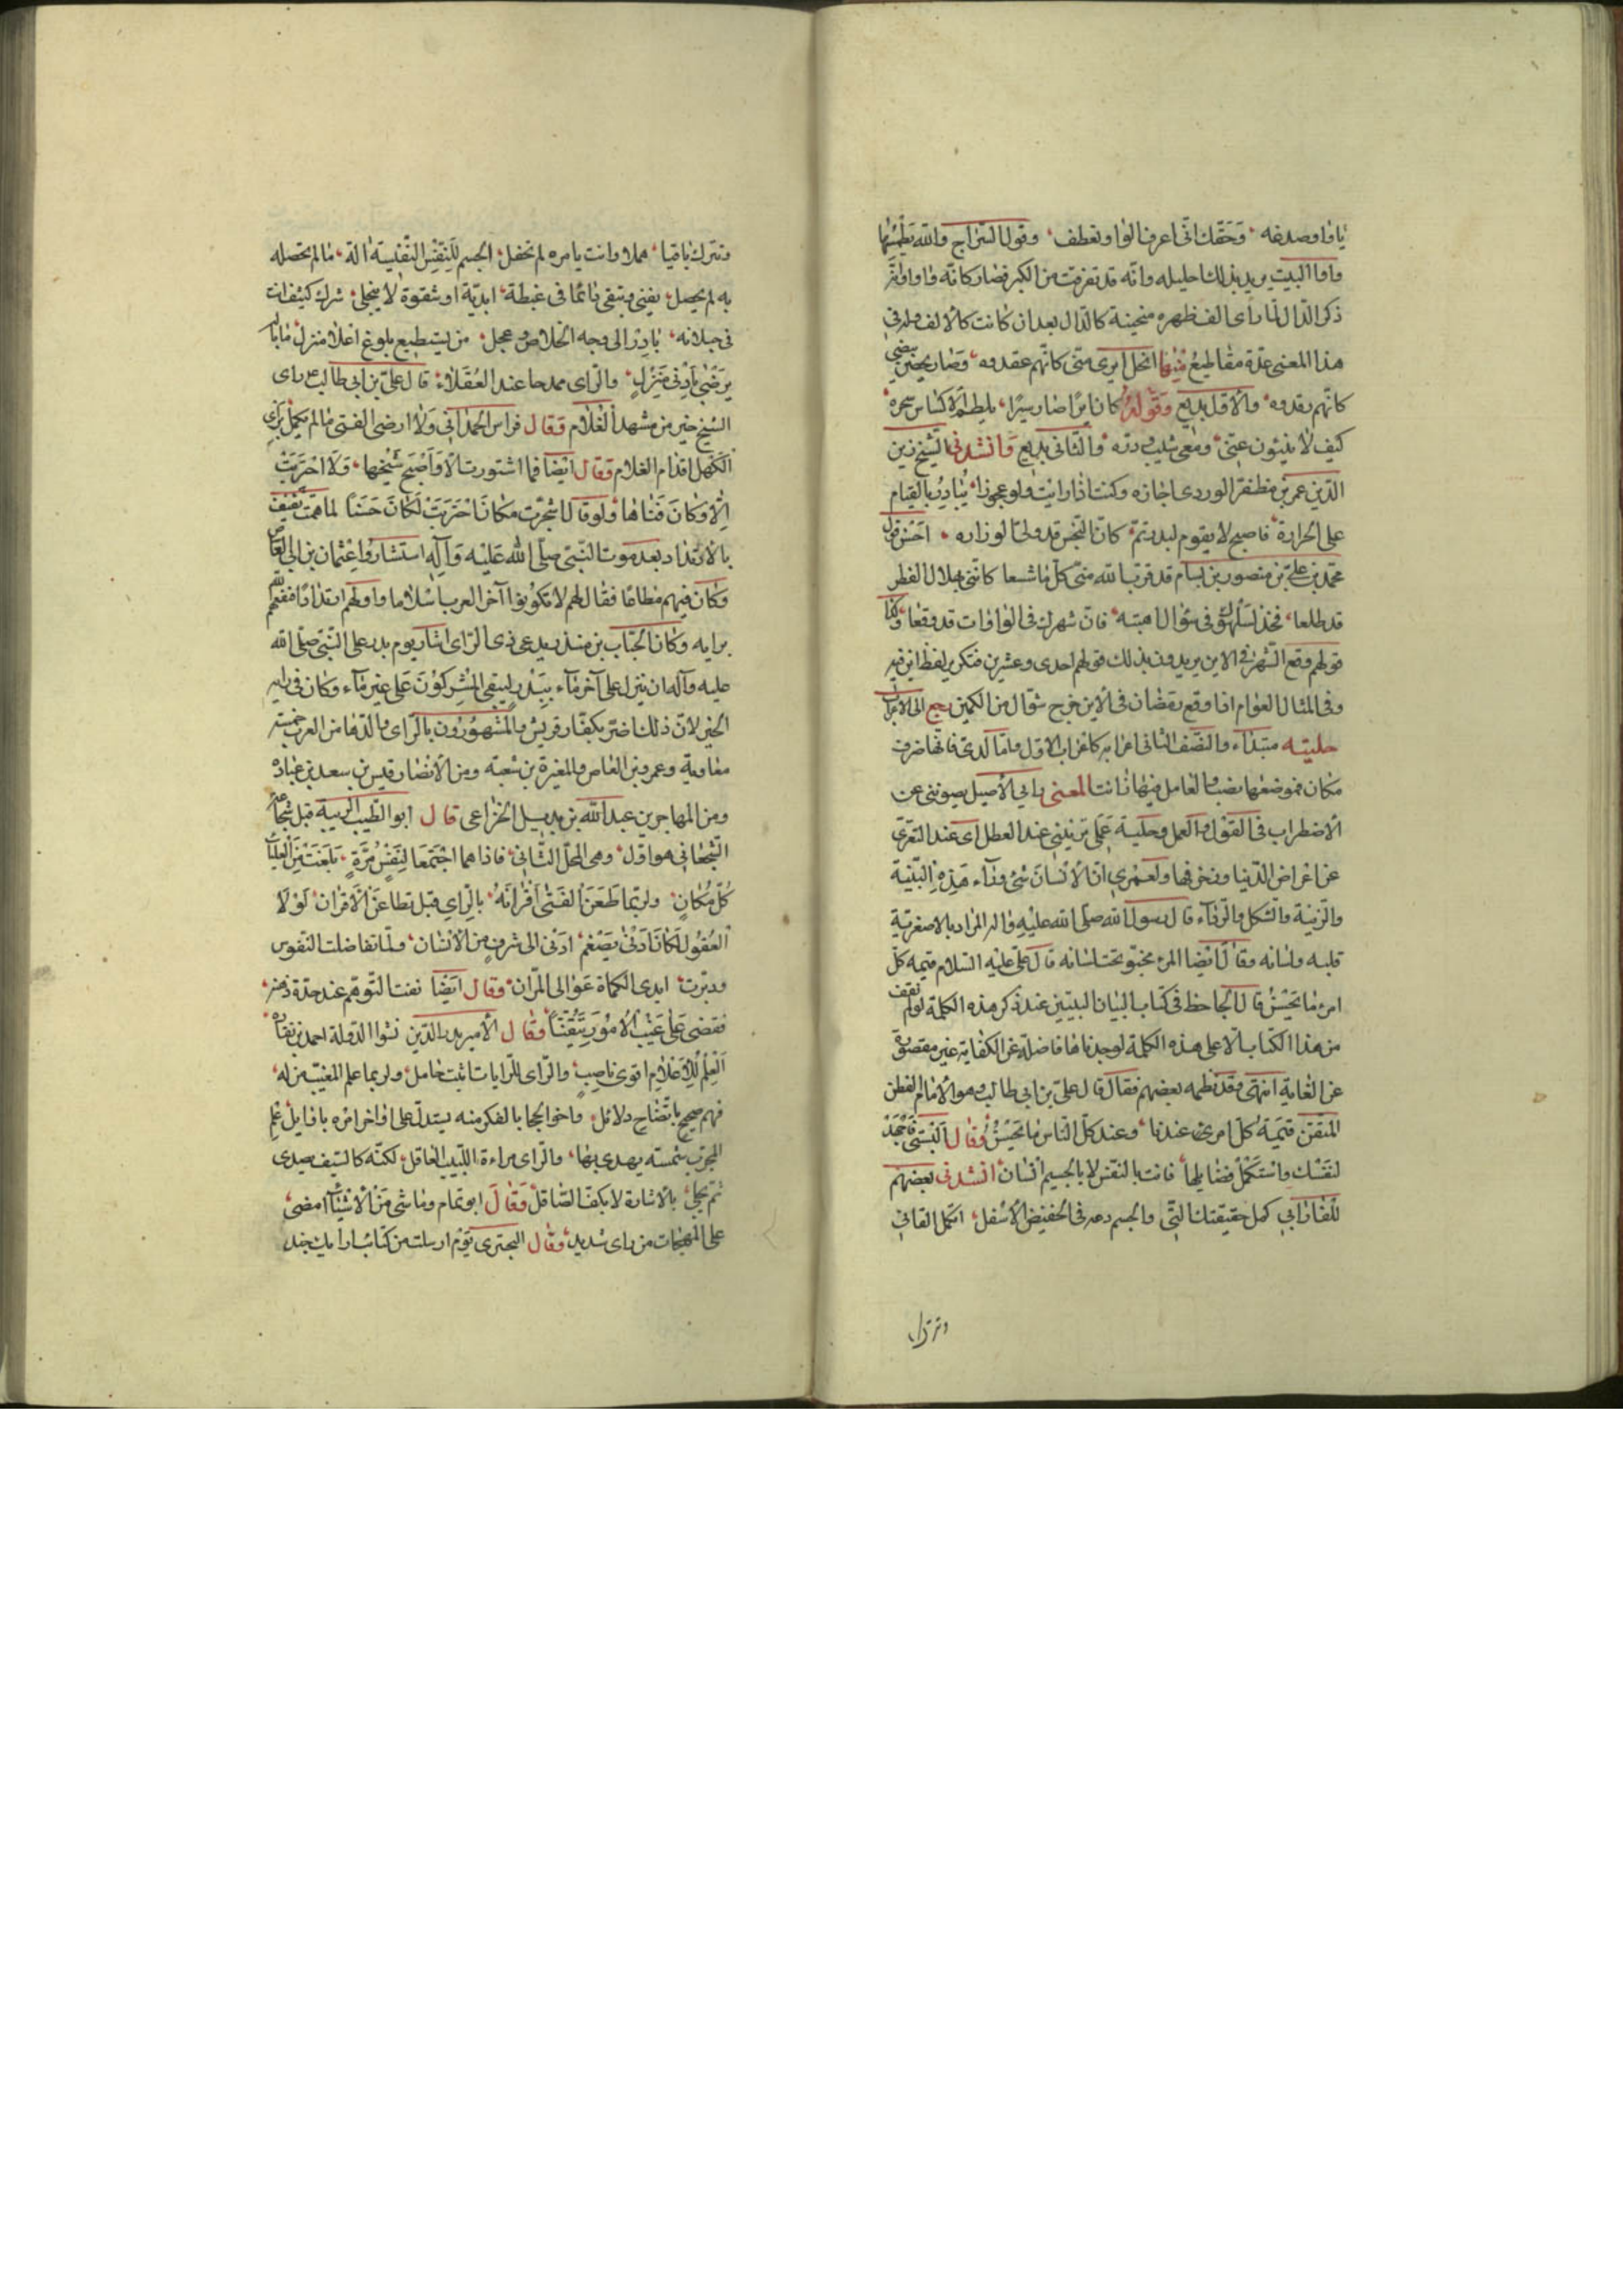 يا واو صدغه وحقك انى اعرف الواو تعطف وقول السراج والله يطمسها
واوا البيت يريد بذلك حليله وانه قد تفرقت من الكبر فصار كانه واو اوثر
ذكر الدال لما راى الف ظهره منحنية كالدال بعد ان كانت كالالف ولد فى
هذا المعنى عدة مقاطيع منها انحل ايرى متى كانهم عقدوه وصار يحنين بيضى
كانهم يقدوه والاول بديع وقوله كان ايرا صار سيرا يلطم الاكساس سحره
كيف لا ينبئون عنى ومعى شيب ودره والثانى بديع وانشدنى الشيخ زين
الدين عمر بن مظفر الوردى اجازة وكنت اذا رايت ولو عجوزا يبادر بالقيام
على الحرارة فاصبح لا يقوم لبدر تم كان النحس قد ولى الوزاره احسن قول
محمد بن على بن منصور بن بسام قد قرب الله منى كل ما شسعا كاننى بهلال الفطر
قد طلعا فخذ لشهرك فى شوال اهبته فان شهرك فى الواوات قد وقعا وكذا
قولهم وقع الشهر فى الاين يريدون بذلك قولهم احدى وعشرين فتكرير لفظ اين فيه
وفى المثال العوام اذا وقع رمضان فى الاين خرج شوال من الكمين رجع الى الاعراب
حلية مبتداء والنصف الثانى اعرابه كاعراب الاول واما لدى فانها ضرف
مكان فموضعها نصب والعامل فيها زانت المعنى رابى الاصيل يصوننى عن
الاضطراب فى القول والعمل وحلية على تزيننى عند العطل اى عند التعرى
عن اعراض الدنيا وزخرفها ولعمرى ان الانسان شئ وراء هذه البنية
والزينة والشكل والرواء قال رسول الله صلى الله عليه واله المراد بالاصغريه
قلبه ولسانه وقال ايضا المرء مخبو تحت لسانه قال على عليه السلام قيمه كل
امرء ما يحسن قال الجاحظ فى كتاب البيان التبيين عند ذكر هذه الكلمة لو لم نقف
من هذا الكتاب الا على هذه الكلمة لوجدناها فاضلة عن الكفاية غير مقصرة
عن الغاية انتهى وقد نظمه بعضهم فقال قال على بن ابى طالب وهو الامام الفطن
المتقن قيمة كل امرئ عندنا وعند كل الناس ما يحسن وقال البستى فاجهد
لنفسك واستكمل فضايلها فانت بالنفس لا بالجسم انسان انشدنى بعضهم
للفارابى كمل حقيقتك التى والجسم دعه فى الحضيض الاسفل اتكمل الفانى
وتترك
وتترك باقيا هملا وانت بامره لم تحفل الجسم للنفس النفيسة الة ما لم تحصله
به لم يحصل يفنى وتبقى دائما فى غبطة ابدية او شقوة لا ينجلى شرك كثيف انت
فى حبلانه بادر الى وجه الخلاص وعجل من يستطيع بلوغ اعلا منزل ما باله
يرضى بادنى منزل والراى ممدحا عند العقلاء قال على بن ابى طالب ع راى
الشيخ خير من مشهد الغلام وقال فراس الحمدانى ولا ارضى الفتى ما لم يكمل براى
الكهل اقدام الغلام وقال ايضا فما اشتورت الا واصبح شيخها ولا احتربت
الا وكان فتاها ولو قال اشجرت مكان احتربت لكان حسنا لما همت ثقيف
بالارتداد بعد موت النبى صلى الله عليه وآله استشاروا عثمان بن ابى العاص
وكان فيهم مطاعا فقال لهم لا تكونوا آخر العرب اسلاما واولهم ارتدادا فنفعهم الله
برايه وكان الحباب بن منذر يدعى ذى الراى اشار يوم بدر على النبى صلى الله
عليه وآله ان ينزل على آخر ماء ببدر ليبقى المشركون على غير ماء وكان فى رايه
الخير لان ذلك اضر بكفار قريش والمشهورون بالراى والدها من العرب خمسة
معاوية وعمرو بن العاص والمغيرة بن شعبة ومن الانصار قيس بن سعد بن عباده
ومن المهاجرين عبد الله بن بديل الخزاعى قال ابو الطيب الراى قبل شجاعة
الشجعان هو اول وهى المحل الثانى فاذا هما اجتمعا لنفس مرة بلغت من العلياء
كل مكان ولربما طعن الفتى اقرانه بالراى قبل تطاعن الاقران لولا
العقول لكان ادنى ضيغم ادنى الى شرف من الانسان ولما تفاضلت النفوس
ودبرت ايدى الكماة عوالى المران وقال ايضا نفت التوهم عند حدة ذهنه
فقضى على غيب الامور تيقنا وقال الامير بدر الدين نشوا الدولة احمد بن نفاده
العلم للاعلام اقوى ناصب والراى للرايات ائبت حامل ولربما علم المغيب من له
فهم صحيح باتضاح دلائل واخو الحجا بالفكر منه يستدل على اواخر امره باوايل علم
المجرب شمسه يهدى بها والراى مراءة اللبيب العاقل لكنه كالسيف يصدى
ثم يجلى بالاشارة لا بكف الصاقل وقال ابو تمام وما شى من الاشياء امضى
على المهجات من راى سديد وقال البحترى يقوم ارسلت من كتاب ارايك جند